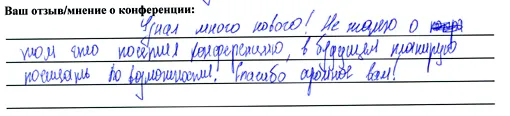 Ваш отзыв/мнение о конференции:
Узнал много нового! Не жалею о
том что посетил конференцию, в будущем планирую
посещать по возможности. Спасибо огромное вам!